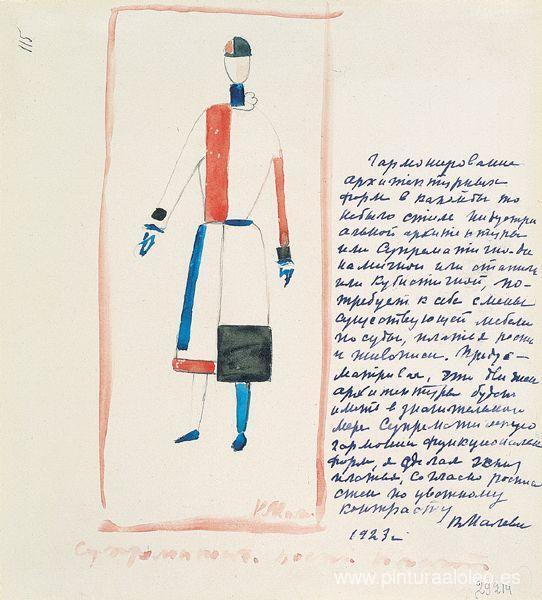 115
Гармонирование
архитектурных
форм в какой бы то
небыло стиле индустри
альной архитектуры
или Супрематично-ди
намичной или статич
или Кубистичной, по-
требует к себе смены
существующей мебели
посуды, платья росписи
и живописи. Предус-
матривая, что движен
архитектуры будет
иметь в значительной
мере Супрематическую
гармонию функциональн
форм, я сделал эскиз
платья, согласно росписи
стен по цветному
контрасту
К Малевич
1923 г.
К Мал
Супрематич.
29214
www.pinturaaloleo.es